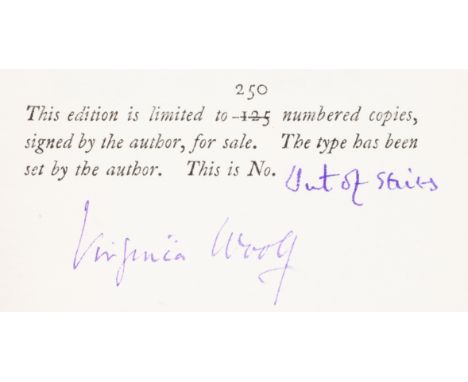 250
This edition is limited to 125 numbered copies,
signed by the author, for sale. The type has been
set by the author. This is No. Out of series
Virginia Woolf